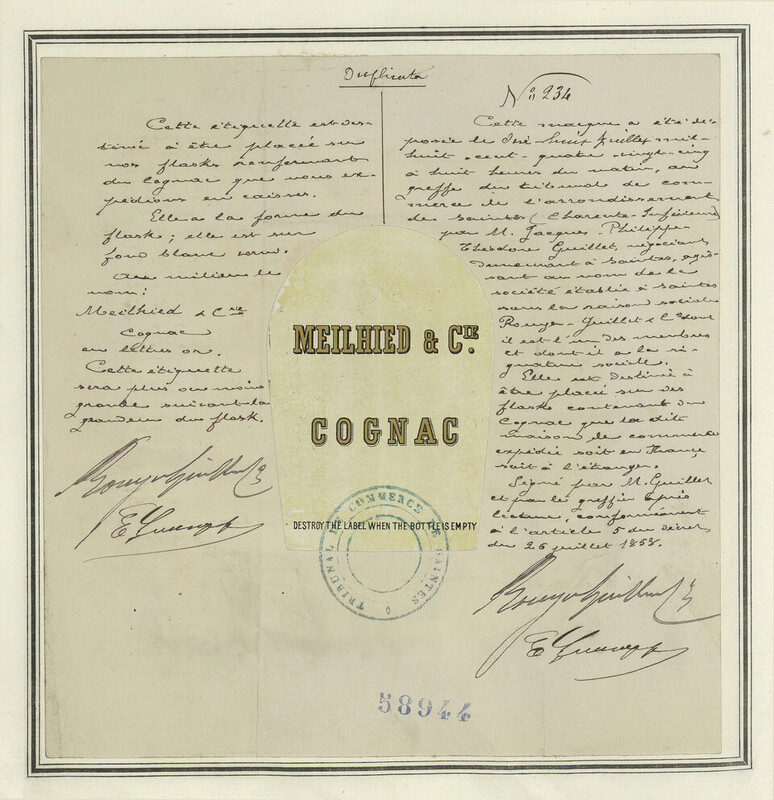 Duplicata
Cette étiquette est des-
tinée à être placée sur
nos flasks renfermant
du Cognac que nous ex-
pédions en caisses.
Elle a la forme du
flask ; elle est sur
fond blanc verni.
Au milieu le
nom :
Meilhied & Cie
Cognac
en lettres or.
Cette étiquette
sera plus ou moins
grande suivant la
grandeur du flask.
MEILHIED & CIE.
COGNAC
DESTROY THE LABEL WHEN THE BOTTLE IS EMPTY
TRIBUNAL DE COMMERCE DE SAINTES
No 234
Cette marque a été dé-
posée le Juillet mil-
huit-cent-quatre-vingt-cinq
à huit heures du matin, au
greffe du tribunal de com-
merce de l'arrondissement
de Saintes (Charente-Inférieure)
par M. Jacques-Philippe-
Théodore Guillet, négociant,
demeurant à Saintes, agis-
sant au nom de la
société établie à Saintes
sous la raison sociale
Rouyer-Guillet & Cie dont
il est l'un des membres
et dont il a la si-
gnature sociale.
Elle est destinée à
être placée sur des
flasks contenant du
Cognac que la dit
maison de commerce
expédie soit en France
soit à l'étranger.
Signé par M. Guillet
et par le greffier après
lecture, conformément
à l'article 5 du décret
du 26 juillet 1858.
58944